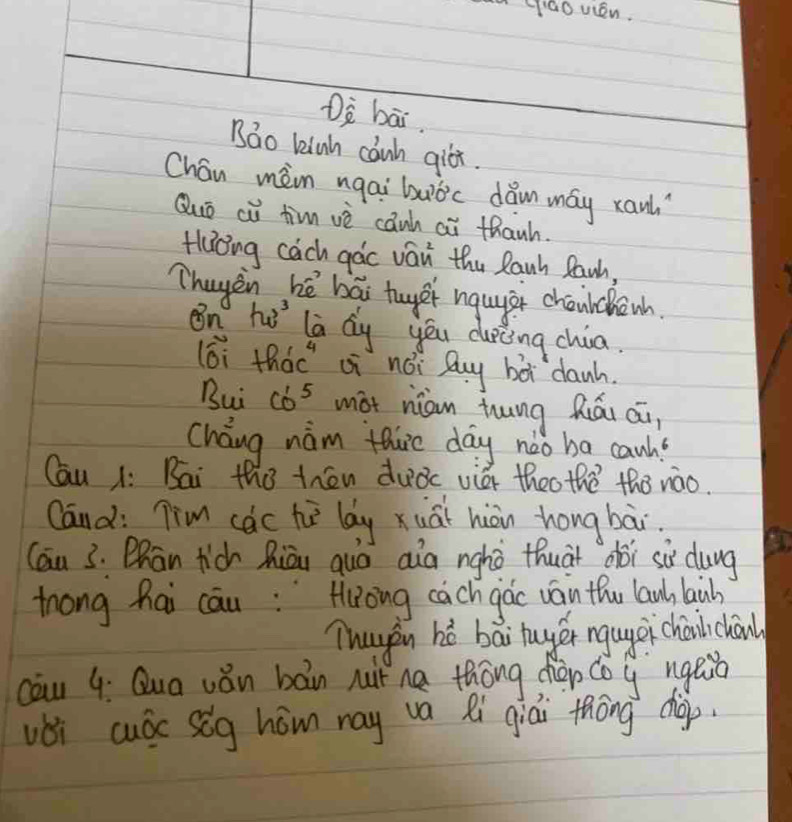 giáo viên.
Đề bài.
Bảo kính cảnh giới.
Chân mềm ngại bước dặm mây xanh¹
Quê cũ tìm về cảnh cũ thanh.
Hương cách gác vân thu lạnh lạnh,
Thuyền kề bãi tuyết nguyệt chênh chênh.
Ơn tư³ là ấy yêu đường chúa.
lỗi thác⁴ vì nơi luỵ bởi danh.
Bui có⁵ một niềm trung hiếu cũ,
Chẳng nằm thức dậy nẻo ba canh⁶
Câu 1: Bài thơ trên được viết theo thể thơ nào.
Câu 2: Tìm các từ láy xuất hiện trong bài.
Câu 3. Phân tích hiệu quả của nghệ thuật đối sử dụng
trong hai câu : Hương cách gác vân thu lạnh lạnh
Thuyền kề bãi tuyết nguyệt chênh chênh
câu 4: Qua văn bản rút ra thông điệp có ý nghĩa
với cuộc sốg hôm nay và lí giải thông điệp.